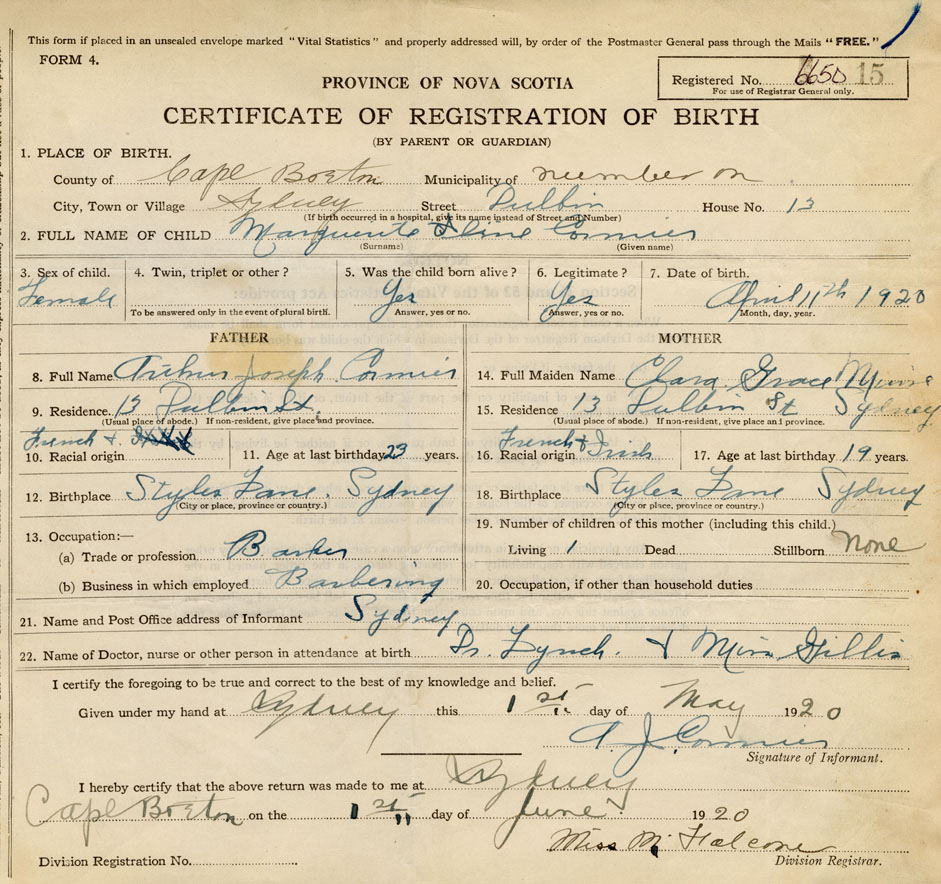 This form if placed in an unsealed envelope marked "Vital Statistics" and properly addressed will, by order of the Postmaster General pass through the Mails "FREE."
FORM 4.
Registered No. 6650 15
For use of Registrar General only.
PROVINCE OF NOVA SCOTIA
CERTIFICATE OF REGISTRATION OF BIRTH
(BY PARENT OR GUARDIAN)
1. PLACE OF BIRTH.
County of Cape Breton Municipality of number on
City, Town or Village Sydney Street House No. 13
(If birth occurred in a hospital, give its name instead of Street and Number)
2. FULL NAME OF CHILD Marguerite Cormier
(Surname) (Given name)
3. Sex of child. 4. Twin, triplet or other? 5. Was the child born alive? 6. Legitimate? 7. Date of birth.
Female Yes Yes April 11th 1920
To be answered only in the event of plural birth. Answer, yes or no. Answer, yes or no. Month, day, year.
FATHER MOTHER
8. Full Name Arthur Joseph Cormier
14. Full Maiden Name Clara Grace
9. Residence. 13 St.
15. Residence 13 St Sydney
(Usual place of abode.) If non-resident, give place and province.
(Usual place of abode.) If non-resident, give place and province.
French &
10. Racial origin 11. Age at last birthday 23 years.
French & Irish
16. Racial origin 17. Age at last birthday 19 years.
12. Birthplace Styles Lane. Sydney
(City or place, province or country.)
18. Birthplace Styles Lane Sydney
(City or place, province or country.)
13. Occupation:—
(a) Trade or profession Barber
(b) Business in which employed Barbering
19. Number of children of this mother (including this child.)
Living 1 Dead Stillborn None
20. Occupation, if other than household duties
21. Name and Post Office address of Informant Sydney
22. Name of Doctor, nurse or other person in attendance at birth Dr. Lynch. & Miss Gillis
I certify the foregoing to be true and correct to the best of my knowledge and belief.
Given under my hand at Sydney this 1st day of May 1920
A. J. Cormier
Signature of Informant.
I hereby certify that the above return was made to me at Sydney
Cape Breton on the 1st day of June 1920
Miss M. Falcone
Division Registration No. Division Registrar.